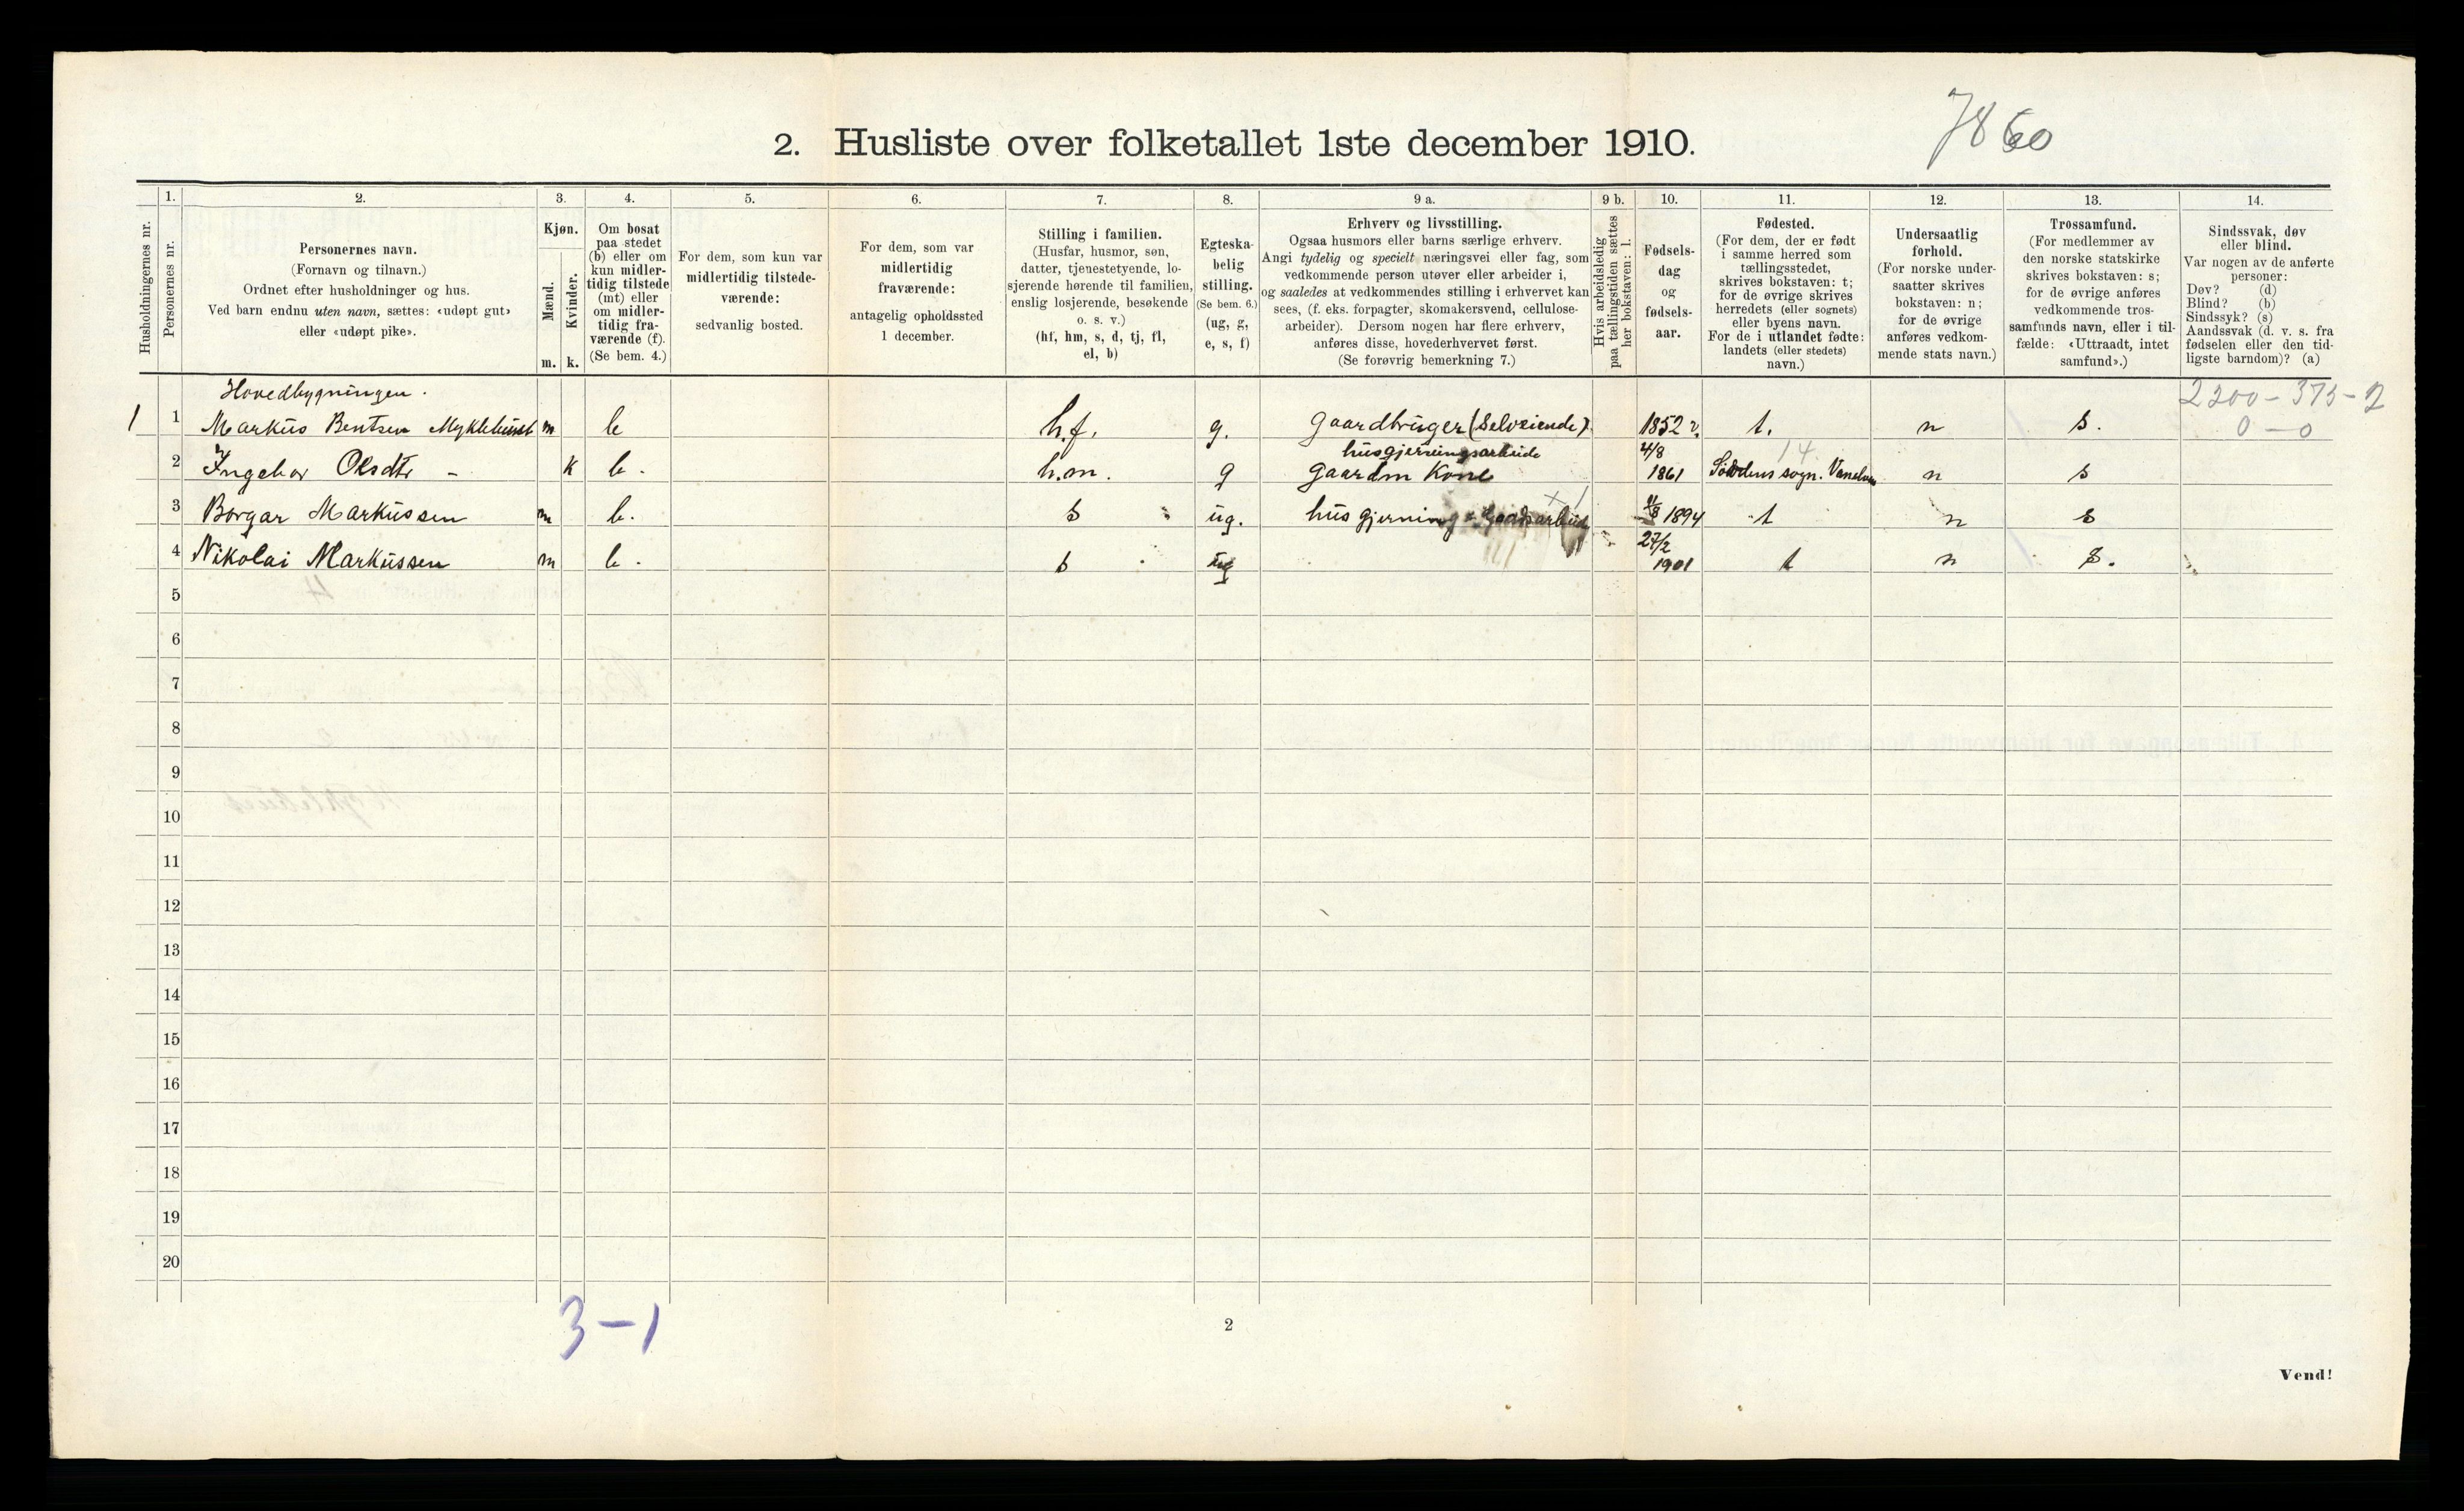 7860
2. Husliste over folketallet 1ste december 1910.
Husholdningernes nr.
1.
Personernes nr.
2.
Personernes navn.
(Fornavn og tilnavn.)
Ordnet efter husholdninger og hus.
Ved barn endnu uten navn, sættes: «udøpt gut»
eller «udøpt pike».
3.
Kjøn.
Mænd.
Kvinder.
m. k.
4.
Om bosat
paa stedet
(b) eller om
kun midler-
tidig tilstede
(mt) eller
om midler-
tidig fra-
værende (f).
(Se bem. 4.)
5.
For dem, som kun var
midlertidig tilstede-
værende:
sedvanlig bosted.
6.
For dem, som var
midlertidig
fraværende:
antagelig opholdssted
1 december.
7.
Stilling i familien.
(Husfar, husmor, søn,
datter, tjenestetyende, lo-
sjerende hørende til familien,
enslig losjerende, besøkende
o. s. v.)
(hf, hm, s, d, tj, fl,
el, b)
8.
Egteska-
belig
stilling.
(Se bem. 6.)
(ug, g,
e, s, f)
9 a.
Erhverv og livsstilling.
Ogsaa husmors eller barns særlige erhverv.
Angi tydelig og specielt næringsvei eller fag, som
vedkommende person utøver eller arbeider i,
og saaledes at vedkommendes stilling i erhvervet kan
sees, (f. eks. forpagter, skomakersvend, cellulose-
arbeider). Dersom nogen har flere erhverv,
anføres disse, hovederhvervet først.
(Se forøvrig bemerkning 7.)
9 b.
Hvis arbeidsledig
paa tællingstiden sættes
her bokstaven: l.
10.
Fødsels-
dag
og
fødsels-
aar.
11.
Fødested.
(For dem, der er født
i samme herred som
tællingsstedet,
skrives bokstaven: t;
for de øvrige skrives
herredets (eller sognets)
eller byens navn.
For de i utlandet fødte:
landets (eller stedets)
navn.)
12.
Undersaatlig
forhold.
(For norske under-
saatter skrives
bokstaven: n;
for de øvrige
anføres vedkom-
mende stats navn.)
13.
Trossamfund.
(For medlemmer av
den norske statskirke
skrives bokstaven: s;
for de øvrige anføres
vedkommende tros-
samfunds navn, eller i til-
fælde: «Uttraadt, intet
samfund».)
14.
Sindssvak, døv
eller blind.
Var nogen av de anførte
personer:
Døv? (d)
Blind? (b)
Sindssyk? (s)
Aandssvak (d. v. s. fra
fødselen eller den tid-
ligste barndom)? (a)
Hovedbygningen.
2200-375-2
1 1 Markus Bentsen Myklebust m b h.f. g. gaardbruger (Selveiende) 1852 t. n s. 0-0
husgjerningsarbeide 4/8 14
2 Ingebor Olsdtr - k b. h.m. g gaardm Kone 1861 sogn. n s
3 Borgar Markussen m b. s ug. husgjerning 1894 t n s
27/2
4 Nikolai Markussen m b. s ug 1901 t n s.
5
6
7
8
9
10
11
12
13
14
15
16
17
18
19
20
3-1
2
Vend!